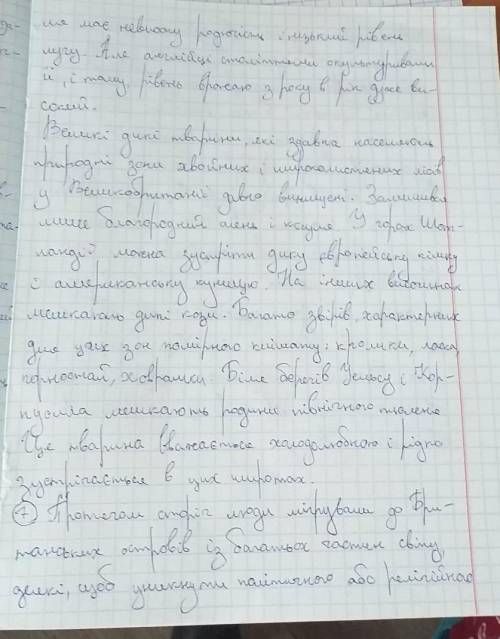 ше має невисоку родючість і низький рівень
лугу. Але англійці століттями окультурювали
її, і тому, рівень врожаю з року в рік дуже ви-
сокий.
Великі дикі тварини, які здавна населяють
природні зони хвойних і широколистених лісів
у Великобританії давно винищені. Залишився
лише благородний олень і косуля. У горах Шот-
ландії можна зустріти дику європейську кішку
і американську куницю. На інших височинах
мешкають дикі кози. Багато звірів, характерних
для цих зон помірного клімату: кролики, ласка,
горностай, ховрашки. Біля берегів Уельсу і Кор-
нуолла мешкають родини північного тюленя
Ця тварина вважається холодолюбною і рідко
зустрічається в цих широтах.
7 Протягом сторіч люди мігрували до Бри-
танських островів із багатьох частин світу,
деякі, щоб уникнути політичного або релігійного